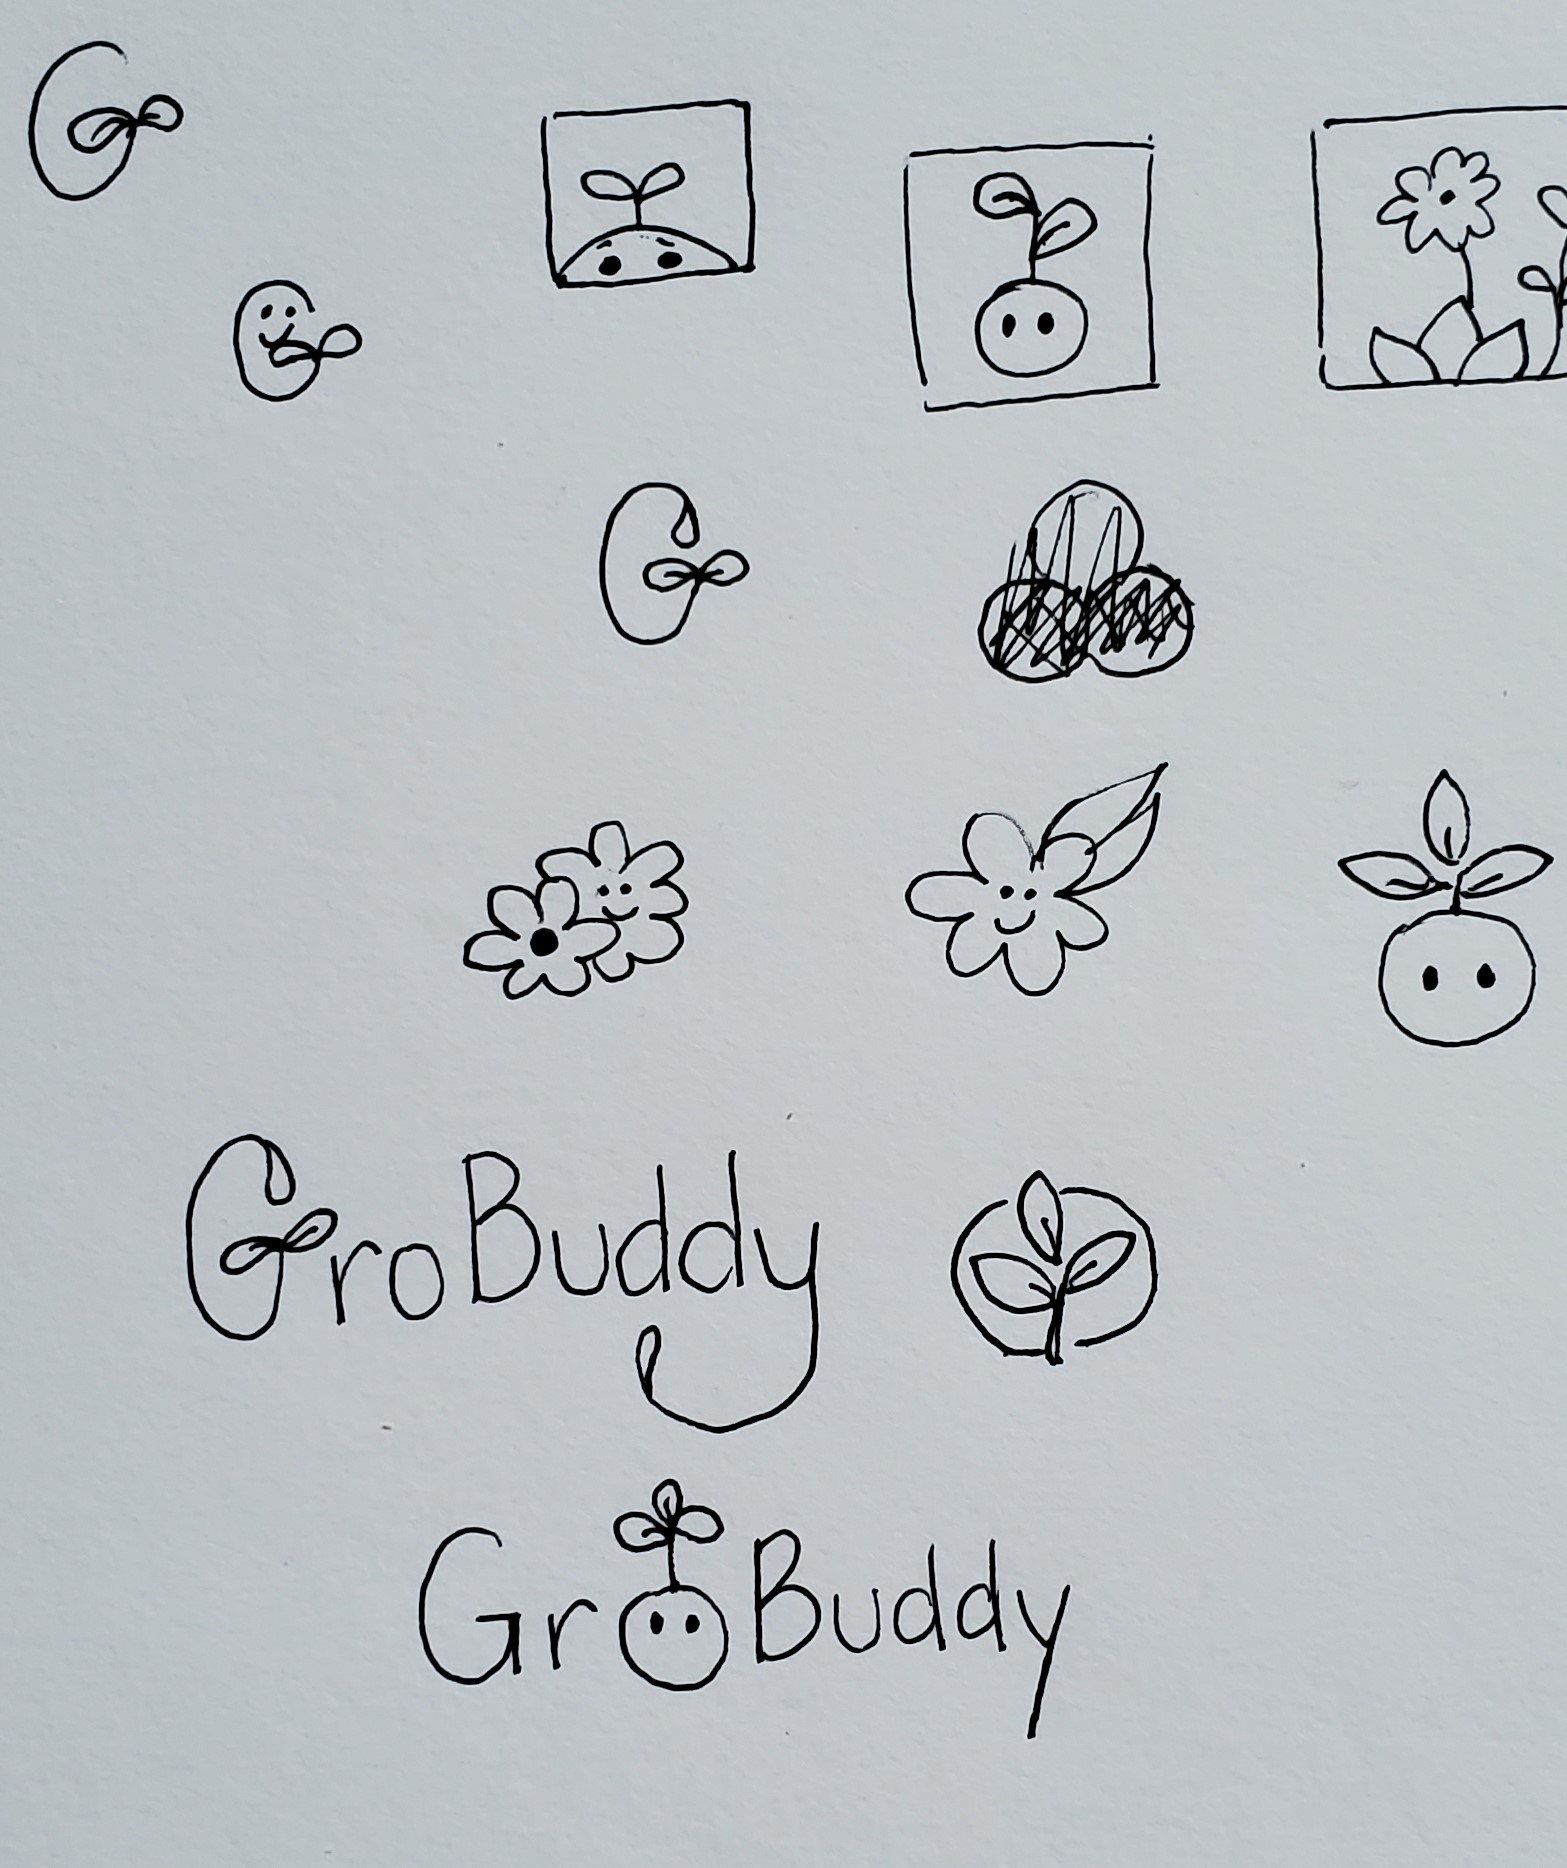 G
G
G
GroBuddy
GroBuddy